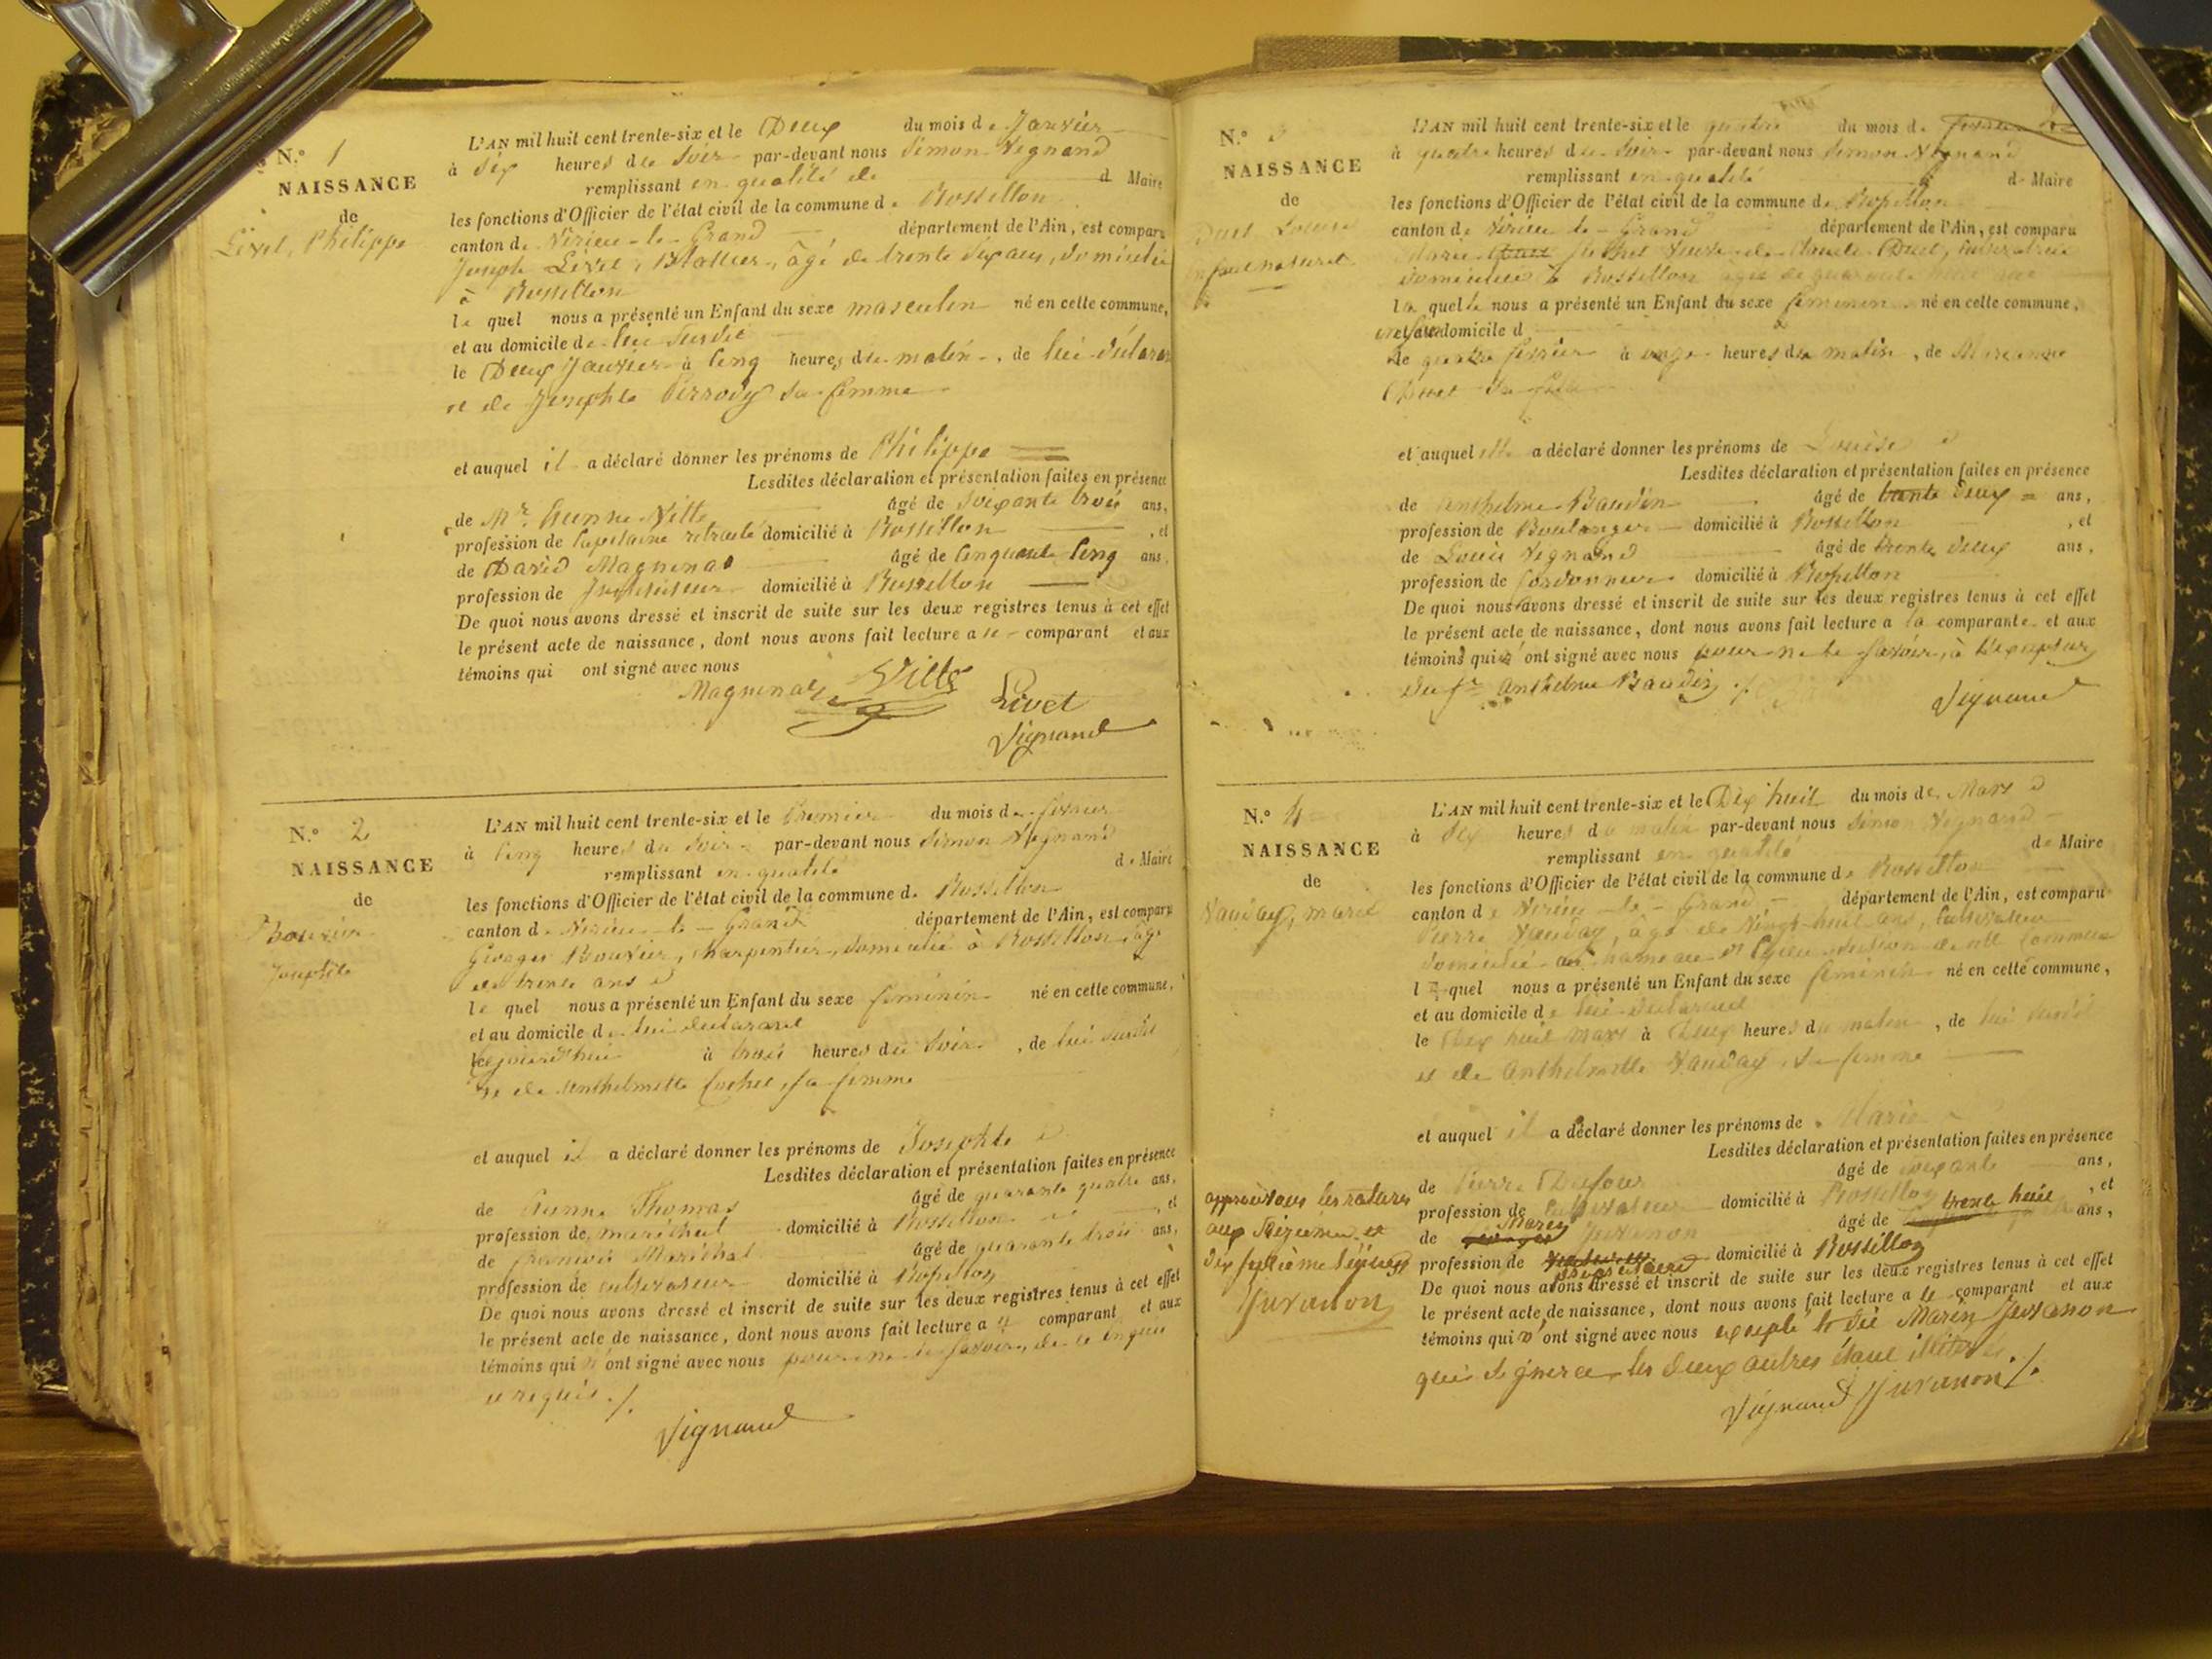 N.º 1
NAISSANCE
de
Livet, Philippe
L'AN mil huit cent trente-six et le Deux du mois de Janvier
à six heures du soir par-devant nous Simon Vignand
remplissant en qualité de d Maire
les fonctions d'Officier de l'état civil de la commune de Rossillon
canton de Virieu-le-Grand département de l'Ain, est comparu
Joseph Livet, âgé de trente six ans, domicilié
à Rossillon
le quel nous a présenté un Enfant du sexe masculin né en cette commune,
et au domicile de lui susdit
le Deux Janvier à cinq heures du matin, de lui déclarant
et de Josephte Perrody sa femme
et auquel il a déclaré donner les prénoms de Philippe
Lesdites déclaration et présentation faites en présence
de Mr. Vitte âgé de soixante trois ans,
profession de Capitaine retraité domicilié à Rossillon, et
de David Magninat âgé de cinquante cinq ans,
profession de domicilié à Rossillon
De quoi nous avons dressé et inscrit de suite sur les deux registres tenus à cet effet
le présent acte de naissance, dont nous avons fait lecture a le comparant et aux
témoins qui ont signé avec nous
Magninat Vitte Livet
Vignand
N.º 2
NAISSANCE
de
Bouvier
Josephte
L'AN mil huit cent trente-six et le Premier du mois de fevrier
à cinq heures du soir par-devant nous Simon Vignand
remplissant en qualité de Maire
les fonctions d'Officier de l'état civil de la commune de Rossillon
canton de Virieu-le-Grand département de l'Ain, est comparu
Georges Bouvier, charpentier, domicilié à Rossillon, âgé
de trente ans
le quel nous a présenté un Enfant du sexe féminin né en cette commune,
et au domicile de lui déclarant
cejourd'hui à trois heures du soir, de lui susdit
et de Anthelmette Cochet, sa femme
et auquel il a déclaré donner les prénoms de Josephte
Lesdites déclaration et présentation faites en présence
de Thomas âgé de quarante quatre ans,
profession de maréchal domicilié à Rossillon, et
de françois Maréchal âgé de quarante trois ans,
profession de cultivateur domicilié à Rossillon
De quoi nous avons dressé et inscrit de suite sur les deux registres tenus à cet effet
le présent acte de naissance, dont nous avons fait lecture a le comparant et aux
témoins qui n'ont signé avec nous pour ne le savoir, de ce enquis
et requis ./.
Vignand
N.º 3
NAISSANCE
de
Duet Louise
Enfant naturel
L'AN mil huit cent trente-six et le quatre du mois de fevrier
à quatre heures du soir par-devant nous Simon Vignand
remplissant en qualité de Maire
les fonctions d'Officier de l'état civil de la commune de Rossillon
canton de Virieu-le-Grand département de l'Ain, est comparu
Marie veuve de Claude Duet, cultivatrice
domiciliée à Rossillon agée de quarante huit ans
la quelle nous a présenté un Enfant du sexe féminin né en cette commune,
et au domicile d
le quatre fevrier à onze heures du matin, de Marianne
Duet sa fille
et auquel elle a déclaré donner les prénoms de Louise
Lesdites déclaration et présentation faites en présence
de Anthelme Baudin âgé de trente deux ans,
profession de Boulanger domicilié à Rossillon, et
de Louis Vignand âgé de trente deux ans,
profession de Cordonnier domicilié à Rossillon
De quoi nous avons dressé et inscrit de suite sur les deux registres tenus à cet effet
le présent acte de naissance, dont nous avons fait lecture a la comparante et aux
témoins qui n'ont signé avec nous pour ne le savoir, à l'exception
du sr. Anthelme Baudin ./.
Vignand
N.º 4
NAISSANCE
de
Vauday, marie
L'AN mil huit cent trente-six et le Dix huit du mois de Mars
à dix heures du matin par-devant nous Simon Vignand
remplissant en qualité de Maire
les fonctions d'Officier de l'état civil de la commune de Rossillon
canton de Virieu-le-Grand département de l'Ain, est comparu
Pierre Vauday, âgé de vingt huit ans, cultivateur
domicilié au hameau d' section de cette commune
le quel nous a présenté un Enfant du sexe féminin né en cette commune,
et au domicile de lui déclarant
le Dix huit Mars à deux heures du matin, de lui susdit
et de Anthelmette Vauday, sa femme
et auquel il a déclaré donner les prénoms de Marie
Lesdites déclaration et présentation faites en présence
de Pierre Dufour âgé de soixante ans,
profession de cultivateur domicilié à Rossillon, et
de Marin Juvanon âgé de trente huit ans,
profession de propriétaire domicilié à Rossillon
De quoi nous avons dressé et inscrit de suite sur les deux registres tenus à cet effet
le présent acte de naissance, dont nous avons fait lecture a le comparant et aux
témoins qui n'ont signé avec nous excepté le dit Marin Juvanon
qui signera les deux autres étant illitérés
Vignand Juvanon ./.
approuvons les ratures
aux seizieme et
dix septième lignes
Juvanon